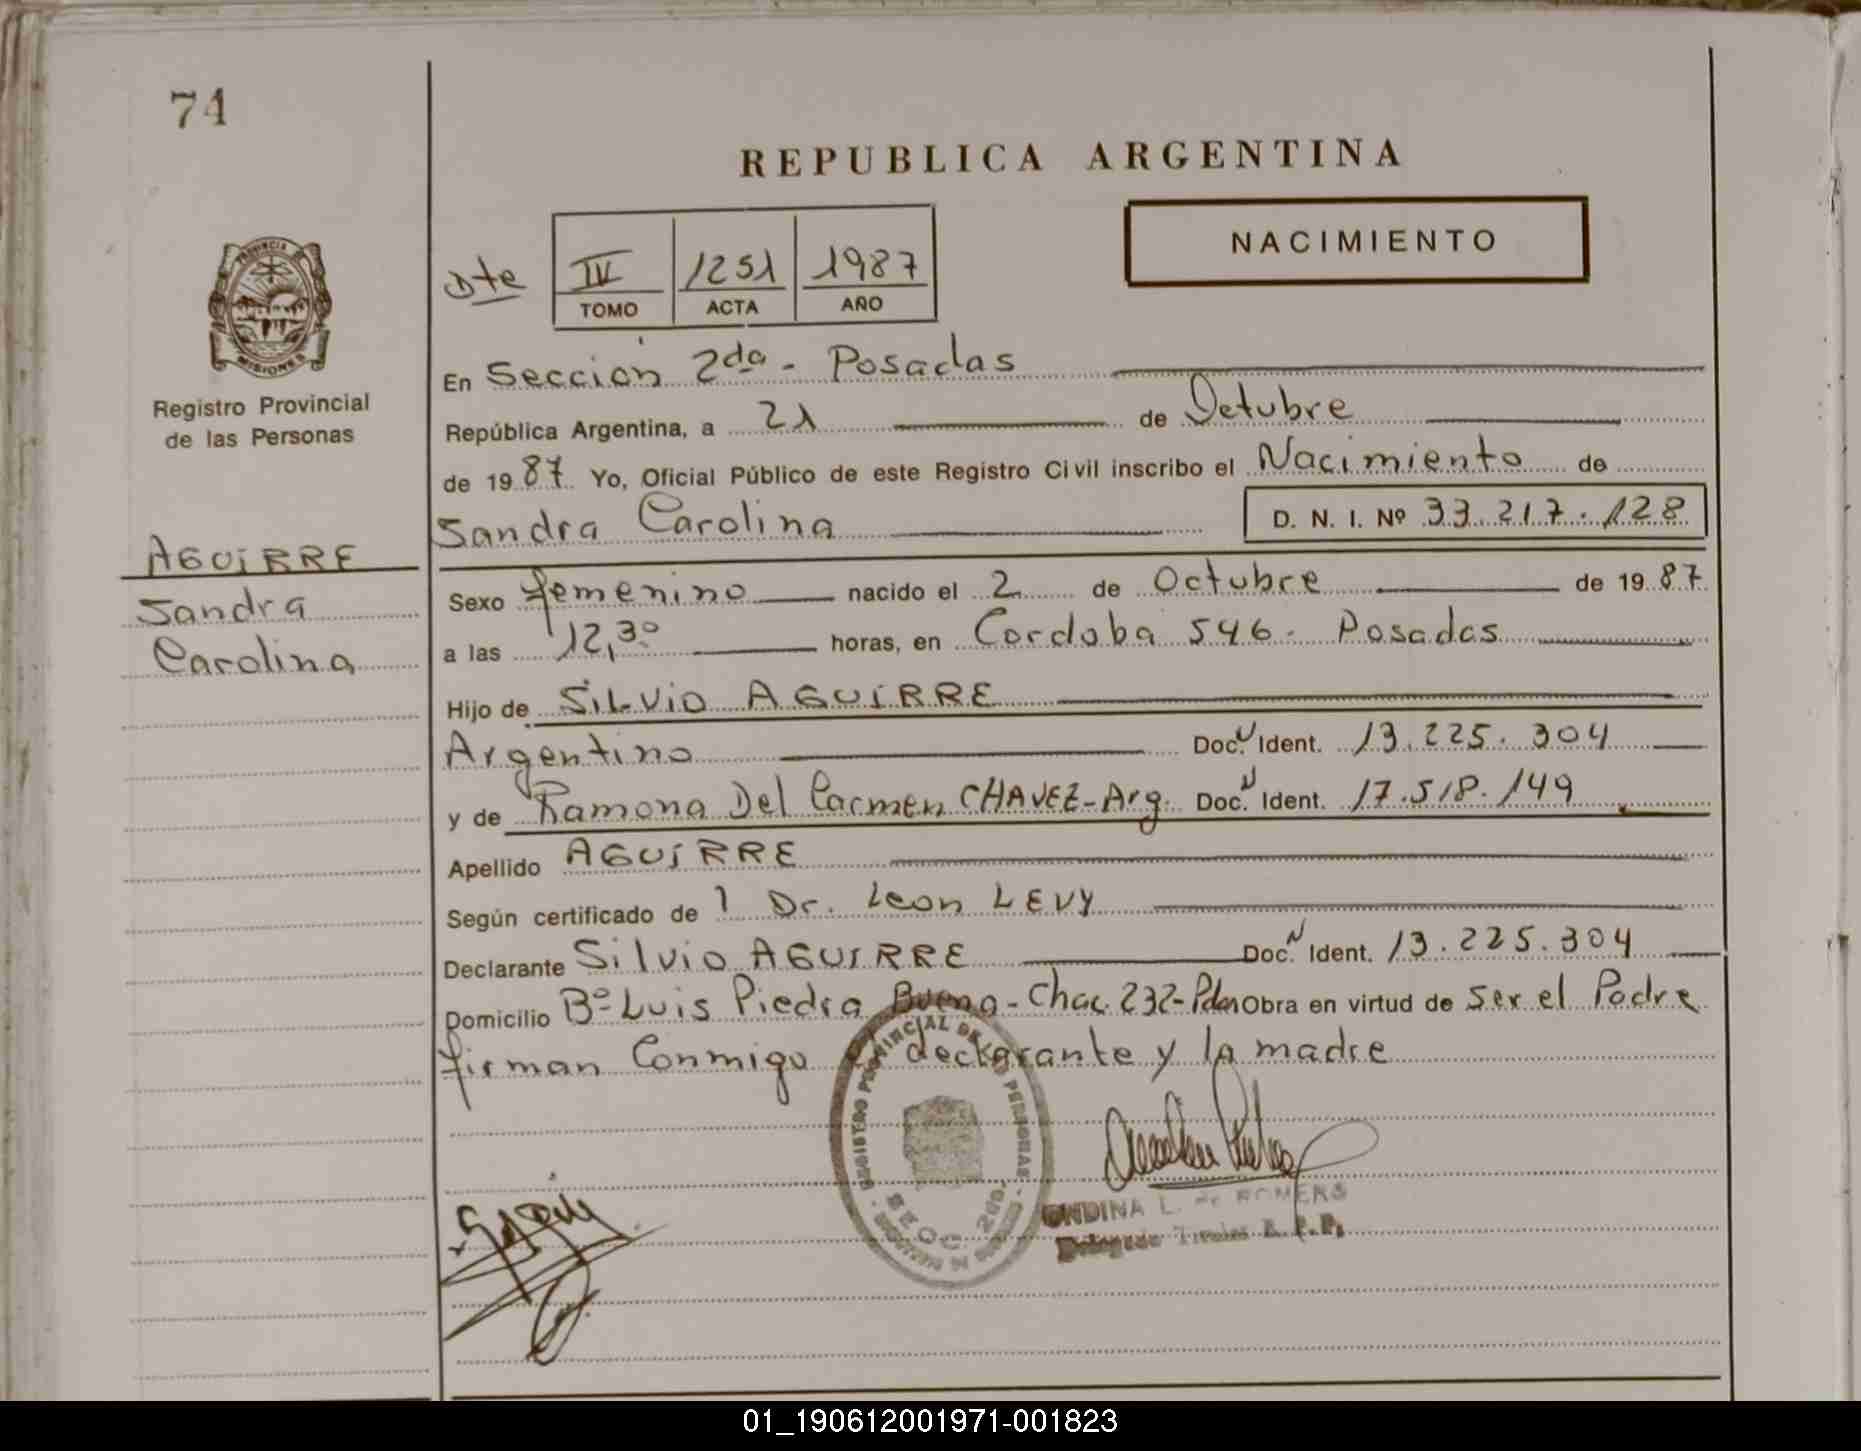 74
REPUBLICA ARGENTINA
NACIMIENTO
Dte IV 1251 1987
TOMO ACTA AÑO
PROVINCIA
MISIONES
Registro Provincial
de las Personas
En Sección 2da - Posadas
República Argentina, a 21 de Octubre
de 1987 Yo, Oficial Público de este Registro Civil inscribo el Nacimiento de
Sandra Carolina D. N. I. Nº 33.217.128
AGUIRRE
Sandra
Carolina
Sexo femenino nacido el 2 de Octubre de 1987
a las 12,30 horas, en Cordoba 546 - Posadas
Hijo de SILVIO AGUIRRE
Argentino Doc. Ident. 13.225.304
y de Ramona Del Carmen CHAVEZ-Arg. Doc. Ident. 17.518.149
Apellido AGUIRRE
Según certificado de Dr. Leon LEVY
Declarante Silvio AGUIRRE Doc. Ident. 13.225.304
Domicilio Bº Luis Piedra Buena - Chac. 232- Obra en virtud de ser el Padre
firman Conmigo el declarante y la madre
REGISTRO PROVINCIAL DE LAS PERSONAS
SECC. 2da
ONDINA L. de ROMERO
Delegado Titular R. P. P.
01_190612001971-001823